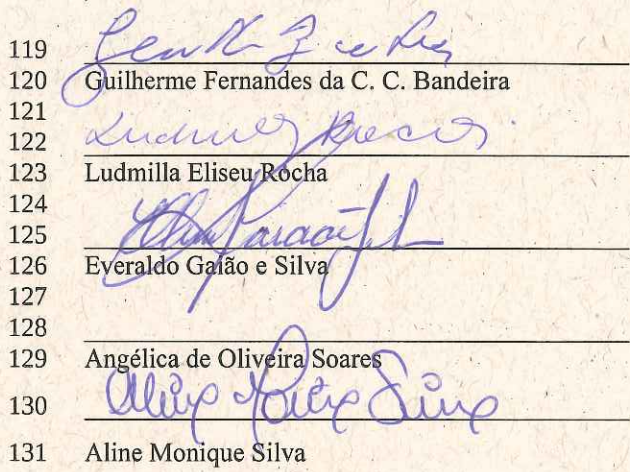 119
120 Guilherme Fernandes da C. C. Bandeira
121
122
123 Ludmilla Eliseu Rocha
124
125
126 Everaldo Gaião e Silva
127
128
129 Angélica de Oliveira Soares
130
131 Aline Monique Silva